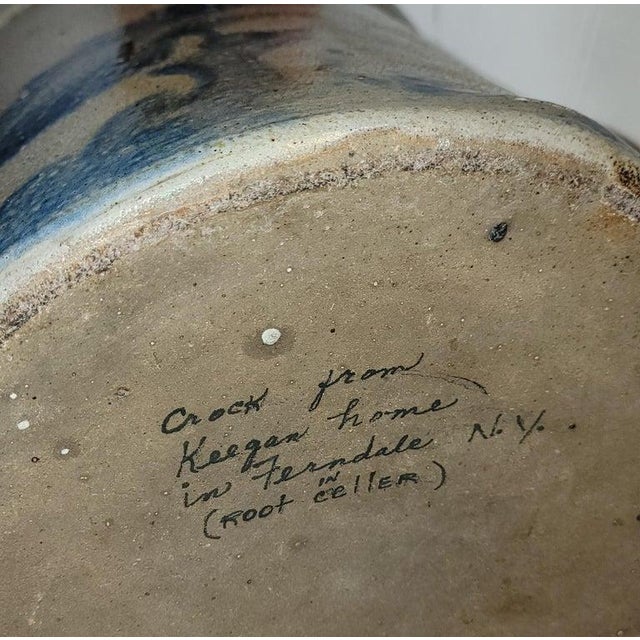 Crock from
Keegan home
in Ferndale N.Y.
(ROOT IN CELLER)